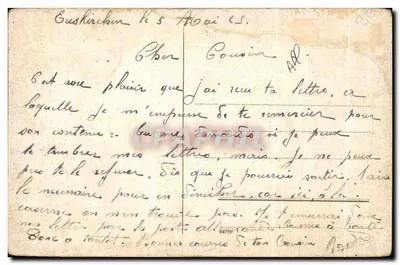 Euskirchen le 5 Mai 25.
Cher Cousin
All
C'est avec plaisir que j'ai recu ta lettre, a
laquelle je m'empresse de te remercier pour
son contenu: tu me demandes si je peux
te timbrer mes lettres, mais je ne peux
pas te le refuser. Dès que je pourrais sortir, faire
le necessaire pour en car ici à la
caserne on n'en trouve pas. Je pourrais
nos lettre par la poste allemande
Donc a Bonnes caresses de ton Cousin